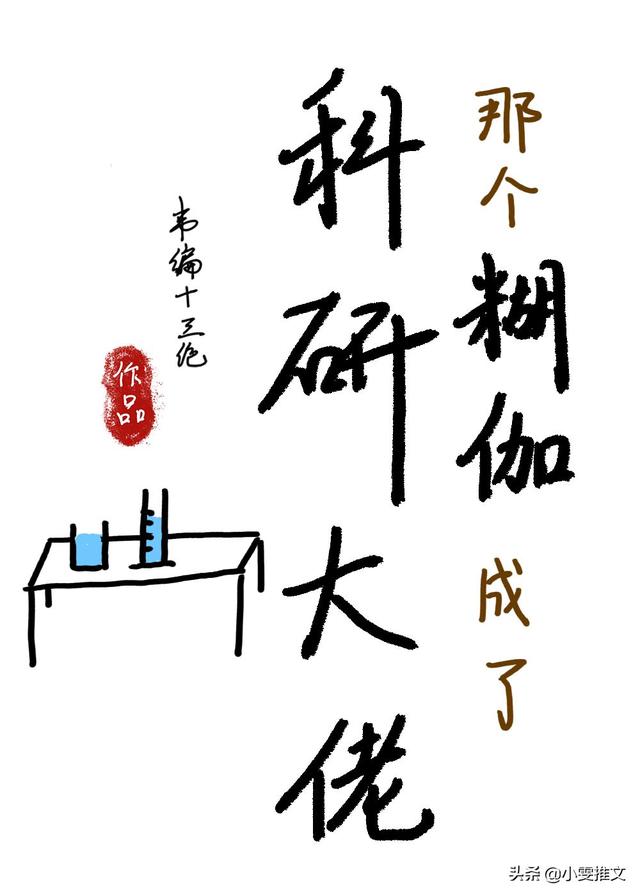 那个糊伽成了
科研大佬
韦编十三绝
作品
头条 @小雯推文